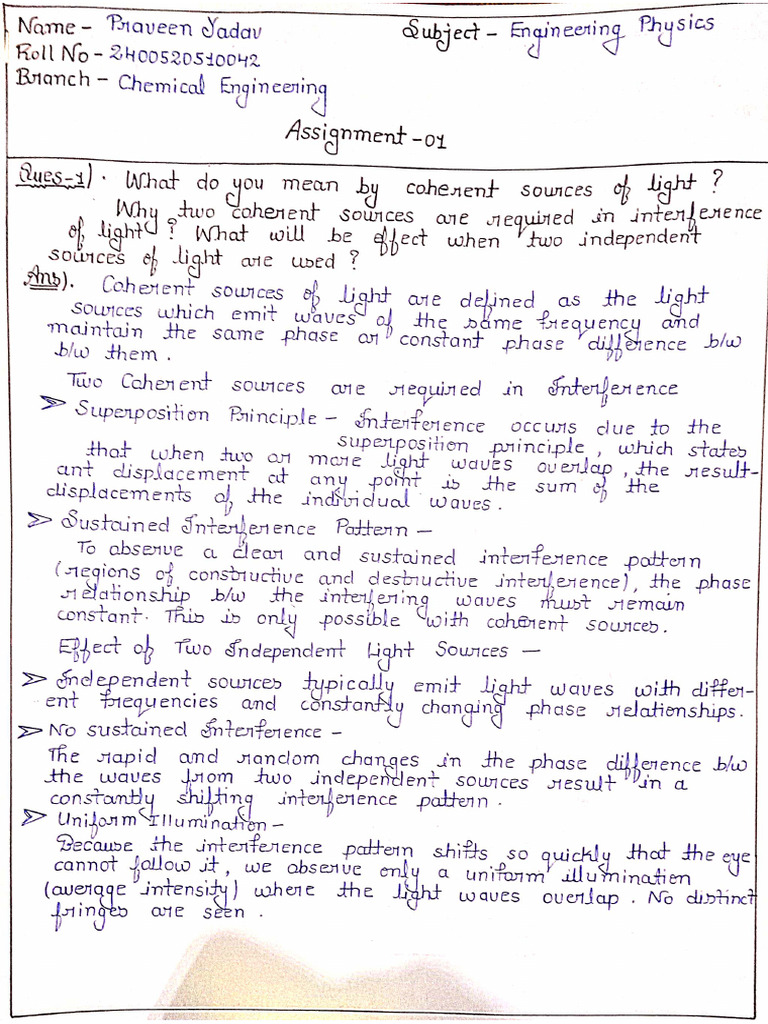 Name - Praveen Yadav Subject - Engineering Physics
Roll No - 2400520510042
Branch - Chemical Engineering
Assignment -01
Ques-1). What do you mean by coherent sources of light ?
Why two coherent sources are required in interference
of light ? What will be effect when two independent
sources of light are used ?
Ans). Coherent sources of light are defined as the light
sources which emit waves of the same frequency and
maintain the same phase or constant phase difference b/w
b/w them.
Two Coherent sources are required in Interference
➢ Superposition Principle - Interference occurs due to the
superposition principle, which states
that when two or more light waves overlap, the result-
ant displacement at any point is the sum of the
displacements of the individual waves.
➢ Sustained Interference Pattern -
To observe a clear and sustained interference pattern
(regions of constructive and destructive interference), the phase
relationship b/w the interfering waves must remain
constant. This is only possible with coherent sources.
Effect of Two Independent Light Sources -
➢ Independent sources typically emit light waves with differ-
ent frequencies and constantly changing phase relationships.
➢ No sustained Interference -
The rapid and random changes in the phase difference b/w
the waves from two independent sources result in a
constantly shifting interference pattern.
➢ Uniform Illumination -
Because the interference pattern shifts so quickly that the eye
cannot follow it, we observe only a uniform illumination
(average intensity) where the light waves overlap. No distinct
fringes are seen.